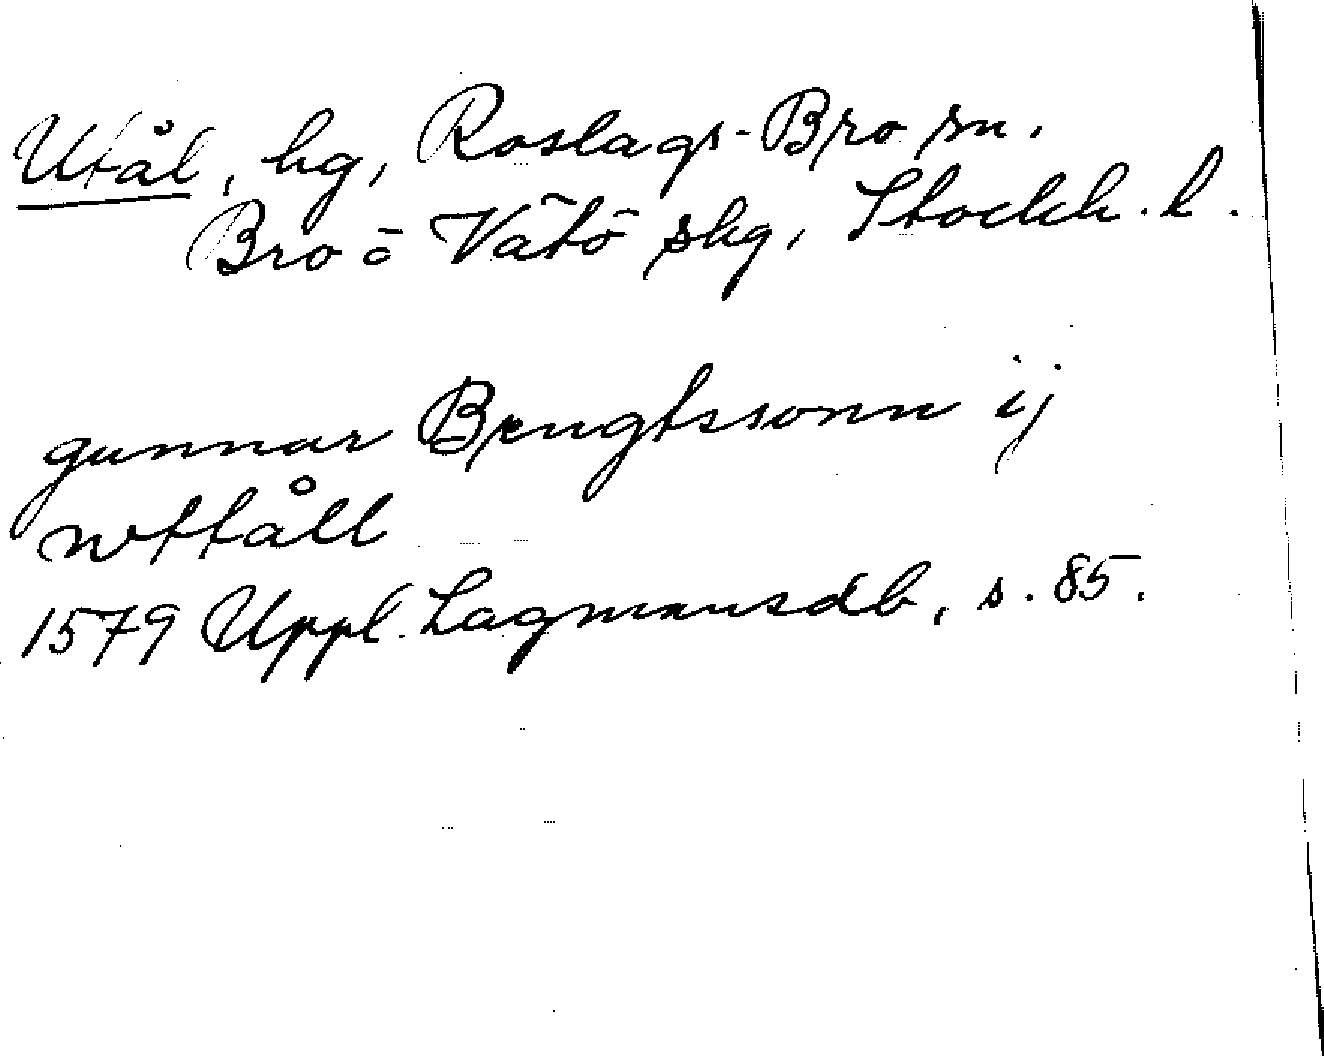 Utål, hg, Roslags-Bro sn.
Bro o Vätö skg, Stockh. l.
gunnar Bengtssonn ij
wttåll
1579 Uppl. Lagmansdb, s. 85.